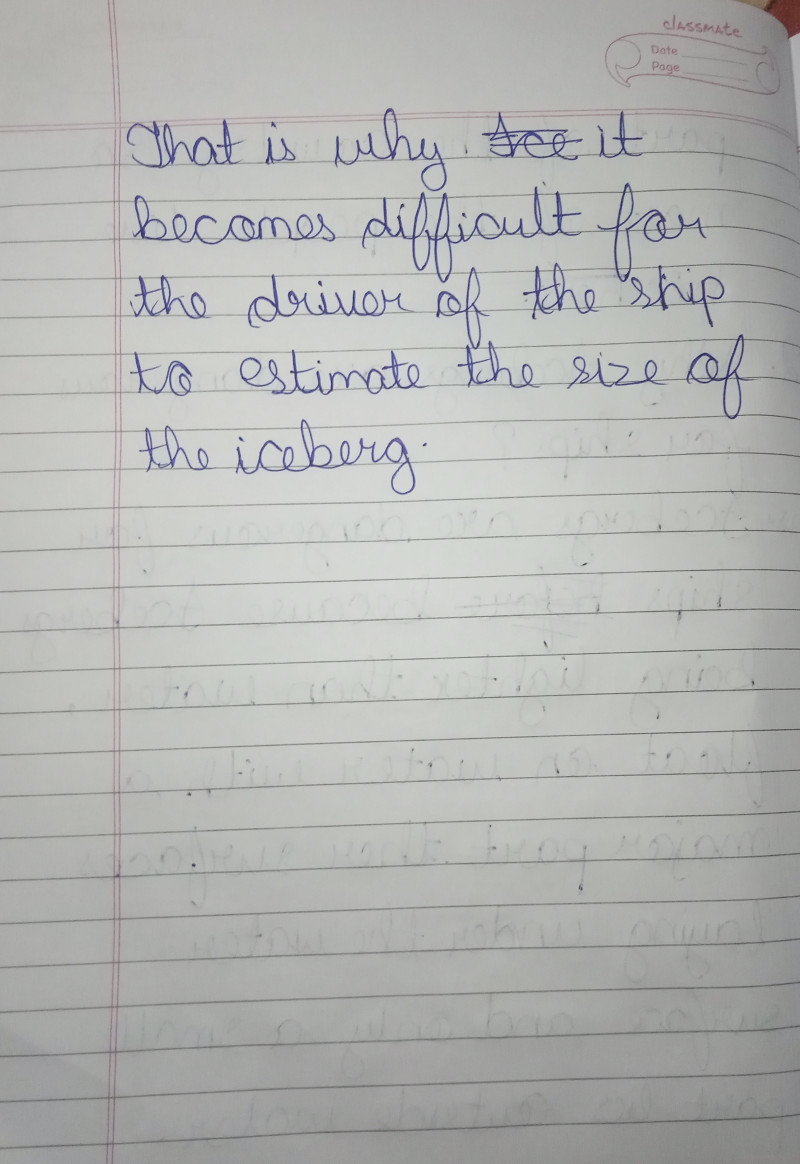 classmate
Date
Page
That is why it
becomes difficult for
the driver of the ship
to estimate the size of
the iceberg.